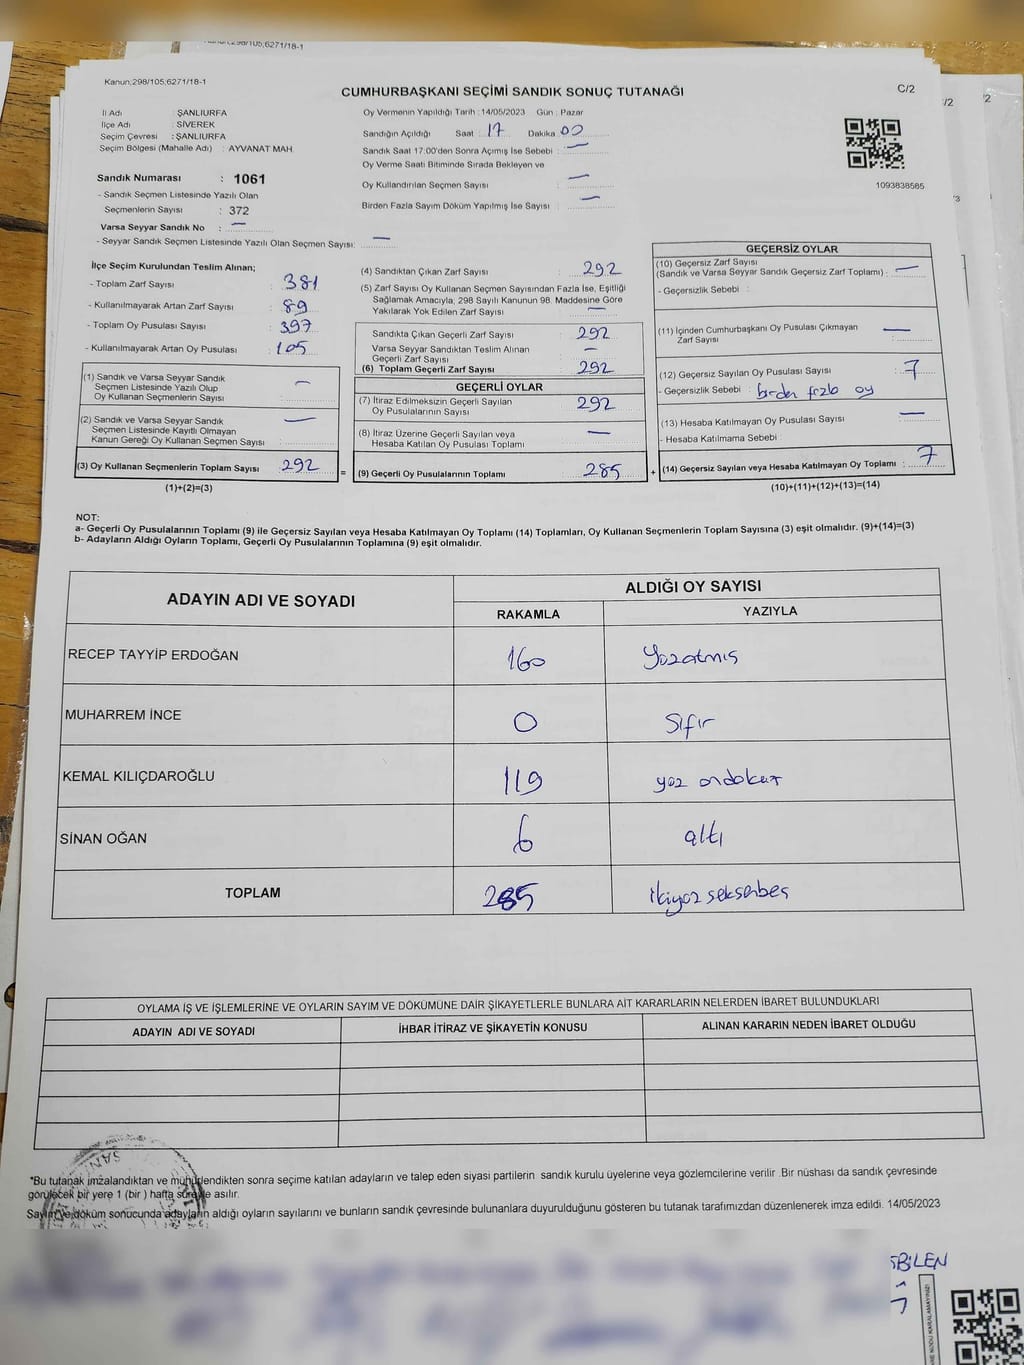 Kanun;298/105;6271/18-1
CUMHURBAŞKANI SEÇİMİ SANDIK SONUÇ TUTANAĞI
C/2
/2
2
İl Adı : ŞANLIURFA
İlçe Adı : SİVEREK
Seçim Çevresi : ŞANLIURFA
Seçim Bölgesi (Mahalle Adı) : AYVANAT MAH.
Oy Vermenin Yapıldığı Tarih : 14/05/2023 Gün : Pazar
Sandığın Açıldığı Saat : 17 Dakika : 00
Sandık Saat 17:00'den Sonra Açımış İse Sebebi : —
Oy Verme Saati Bitiminde Sırada Bekleyen ve
Oy Kullandırılan Seçmen Sayısı : —
Birden Fazla Sayım Döküm Yapılmış İse Sayısı : —
1093838585
Sandık Numarası : 1061
- Sandık Seçmen Listesinde Yazılı Olan
Seçmenlerin Sayısı : 372
Varsa Seyyar Sandık No : —
- Seyyar Sandık Seçmen Listesinde Yazılı Olan Seçmen Sayısı: —
İlçe Seçim Kurulundan Teslim Alınan;
- Toplam Zarf Sayısı : 381
- Kullanılmayarak Artan Zarf Sayısı : 89
- Toplam Oy Pusulası Sayısı : 397
- Kullanılmayarak Artan Oy Pusulası : 105
(1) Sandık ve Varsa Seyyar Sandık
Seçmen Listesinde Yazılı Olup
Oy Kullanan Seçmenlerin Sayısı : —
(2) Sandık ve Varsa Seyyar Sandık
Seçmen Listesinde Kayıtlı Olmayan
Kanun Gereği Oy Kullanan Seçmen Sayısı : —
(3) Oy Kullanan Seçmenlerin Toplam Sayısı : 292
(1)+(2)=(3)
(4) Sandıktan Çıkan Zarf Sayısı : 292
(5) Zarf Sayısı Oy Kullanan Seçmen Sayısından Fazla İse, Eşitliği
Sağlamak Amacıyla; 298 Sayılı Kanunun 98. Maddesine Göre
Yakılarak Yok Edilen Zarf Sayısı : —
Sandıkta Çıkan Geçerli Zarf Sayısı : 292
Varsa Seyyar Sandıktan Teslim Alınan
Geçerli Zarf Sayısı : —
(6) Toplam Geçerli Zarf Sayısı : 292
GEÇERLİ OYLAR
(7) İtiraz Edilmeksizin Geçerli Sayılan
Oy Pusulalarının Sayısı : 292
(8) İtiraz Üzerine Geçerli Sayılan veya
Hesaba Katılan Oy Pusulası Toplamı : —
= (9) Geçerli Oy Pusulalarının Toplamı : 285 +
GEÇERSİZ OYLAR
(10) Geçersiz Zarf Sayısı
(Sandık ve Varsa Seyyar Sandık Geçersiz Zarf Toplamı) : —
- Geçersizlik Sebebi :
(11) İçinden Cumhurbaşkanı Oy Pusulası Çıkmayan
Zarf Sayısı : —
(12) Geçersiz Sayılan Oy Pusulası Sayısı : 7
- Geçersizlik Sebebi : birden fazla oy
(13) Hesaba Katılmayan Oy Pusulası Sayısı : —
- Hesaba Katılmama Sebebi :
(14) Geçersiz Sayılan veya Hesaba Katılmayan Oy Toplamı : 7
(10)+(11)+(12)+(13)=(14)
NOT:
a- Geçerli Oy Pusulalarının Toplamı (9) ile Geçersiz Sayılan veya Hesaba Katılmayan Oy Toplamı (14) Toplamları, Oy Kullanan Seçmenlerin Toplam Sayısına (3) eşit olmalıdır. (9)+(14)=(3)
b- Adayların Aldığı Oyların Toplamı, Geçerli Oy Pusulalarının Toplamına (9) eşit olmalıdır.
ADAYIN ADI VE SOYADI
ALDIĞI OY SAYISI
RAKAMLA YAZIYLA
RECEP TAYYİP ERDOĞAN 160 Yüzatmış
MUHARREM İNCE 0 Sıfır
KEMAL KILIÇDAROĞLU 119 yüz ondokuz
SİNAN OĞAN 6 altı
TOPLAM 285 İkiyüz seksenbeş
OYLAMA İŞ VE İŞLEMLERİNE VE OYLARIN SAYIM VE DÖKÜMÜNE DAİR ŞİKAYETLERLE BUNLARA AİT KARARLARIN NELERDEN İBARET BULUNDUKLARI
ADAYIN ADI VE SOYADI İHBAR İTİRAZ VE ŞİKAYETİN KONUSU ALINAN KARARIN NEDEN İBARET OLDUĞU
*Bu tutanak imzalandıktan ve mühürlendikten sonra seçime katılan adayların ve talep eden siyasi partilerin sandık kurulu üyelerine veya gözlemcilerine verilir. Bir nüshası da sandık çevresinde
görülecek bir yere 1 (bir) hafta süreyle asılır.
Sayım ve döküm sonucunda adayların aldığı oyların sayılarını ve bunların sandık çevresinde bulunanlara duyurulduğunu gösteren bu tutanak tarafımızdan düzenlenerek imza edildi. 14/05/2023
BİLEN